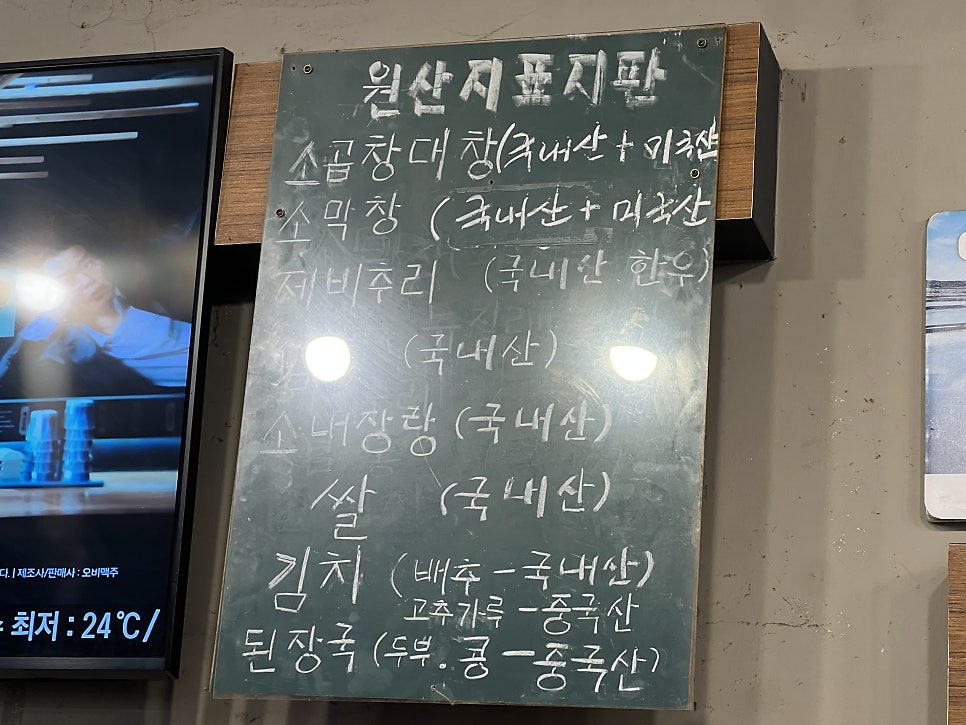 원산지표시판
소곱창대창(국내산 + 미국산
소막창 (국내산 + 미국산
제비추리 (국내산 한우)
(국내산)
소내장탕 (국내산)
쌀 (국내산)
김치 (배추 - 국내산)
고추가루 - 중국산
된장국 (두부.콩 - 중국산)
다. | 제조사/판매사 : 오비맥주
최저 : 24℃/